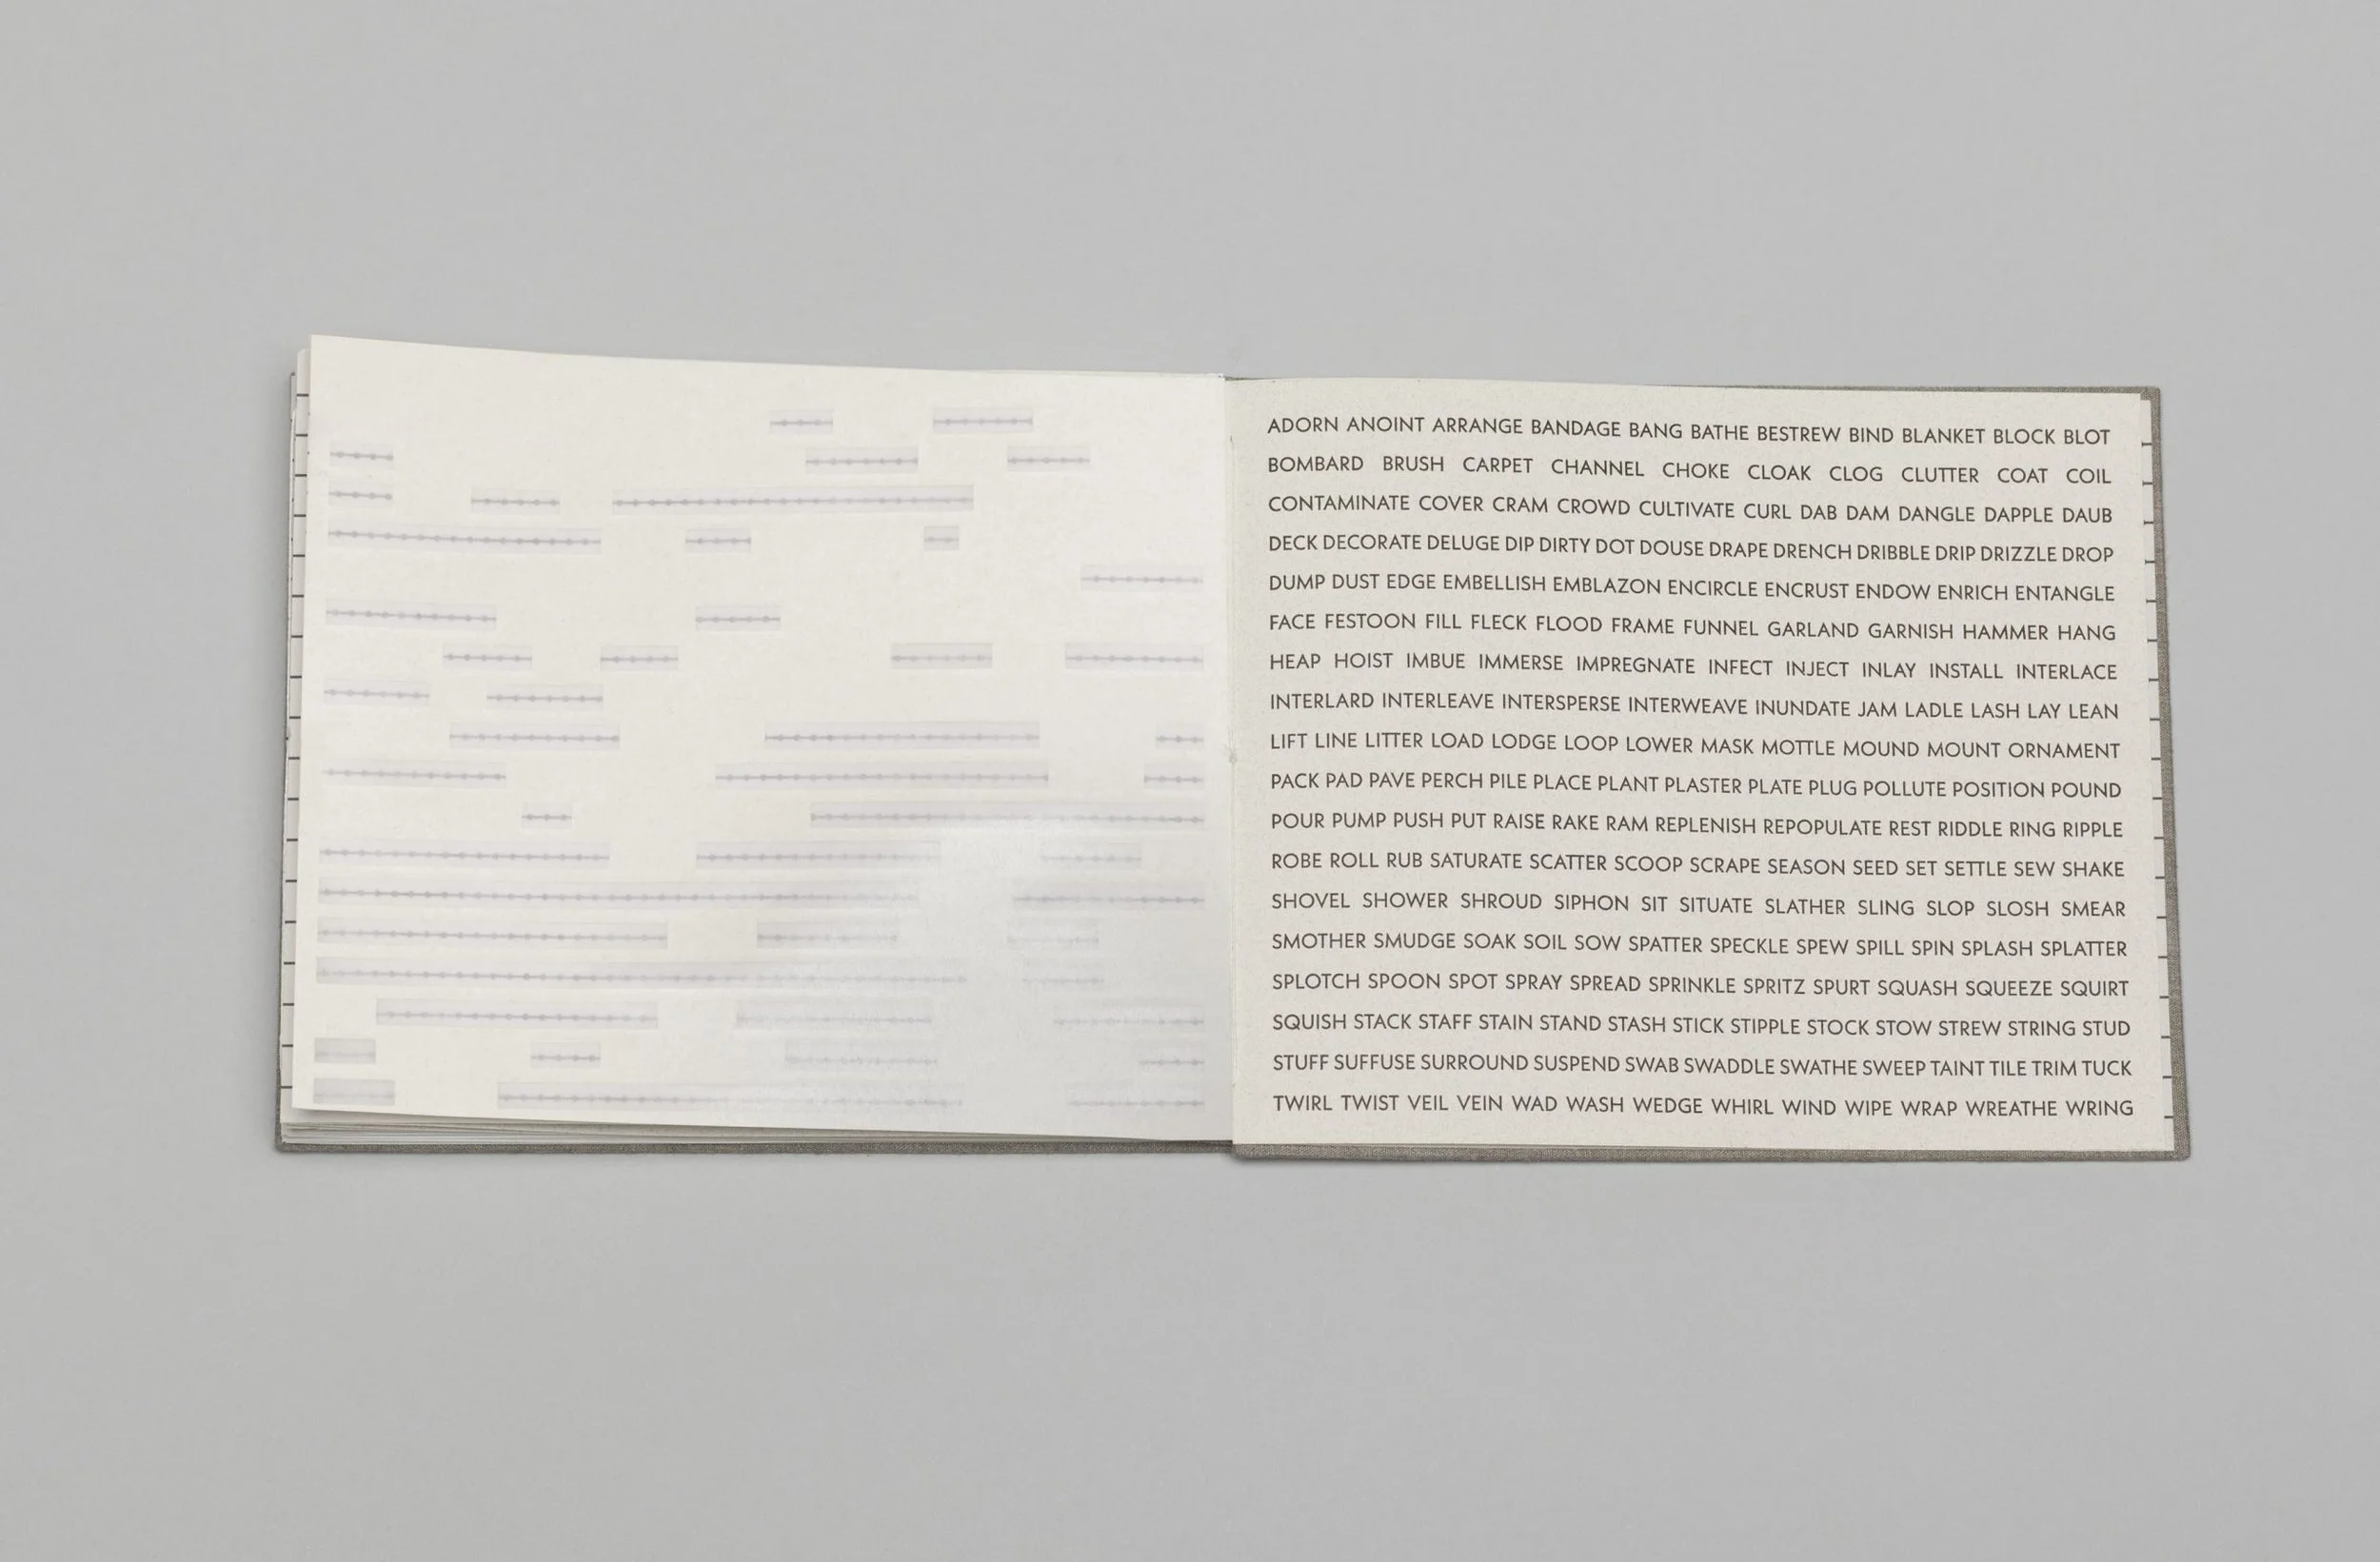 ADORN ANOINT ARRANGE BANDAGE BANG BATHE BESTREW BIND BLANKET BLOCK BLOT
BOMBARD BRUSH CARPET CHANNEL CHOKE CLOAK CLOG CLUTTER COAT COIL
CONTAMINATE COVER CRAM CROWD CULTIVATE CURL DAB DAM DANGLE DAPPLE DAUB
DECK DECORATE DELUGE DIP DIRTY DOT DOUSE DRAPE DRENCH DRIBBLE DRIP DRIZZLE DROP
DUMP DUST EDGE EMBELLISH EMBLAZON ENCIRCLE ENCRUST ENDOW ENRICH ENTANGLE
FACE FESTOON FILL FLECK FLOOD FRAME FUNNEL GARLAND GARNISH HAMMER HANG
HEAP HOIST IMBUE IMMERSE IMPREGNATE INFECT INJECT INLAY INSTALL INTERLACE
INTERLARD INTERLEAVE INTERSPERSE INTERWEAVE INUNDATE JAM LADLE LASH LAY LEAN
LIFT LINE LITTER LOAD LODGE LOOP LOWER MASK MOTTLE MOUND MOUNT ORNAMENT
PACK PAD PAVE PERCH PILE PLACE PLANT PLASTER PLATE PLUG POLLUTE POSITION POUND
POUR PUMP PUSH PUT RAISE RAKE RAM REPLENISH REPOPULATE REST RIDDLE RING RIPPLE
ROBE ROLL RUB SATURATE SCATTER SCOOP SCRAPE SEASON SEED SET SETTLE SEW SHAKE
SHOVEL SHOWER SHROUD SIPHON SIT SITUATE SLATHER SLING SLOP SLOSH SMEAR
SMOTHER SMUDGE SOAK SOIL SOW SPATTER SPECKLE SPEW SPILL SPIN SPLASH SPLATTER
SPLOTCH SPOON SPOT SPRAY SPREAD SPRINKLE SPRITZ SPURT SQUASH SQUEEZE SQUIRT
SQUISH STACK STAFF STAIN STAND STASH STICK STIPPLE STOCK STOW STREW STRING STUD
STUFF SUFFUSE SURROUND SUSPEND SWAB SWADDLE SWATHE SWEEP TAINT TILE TRIM TUCK
TWIRL TWIST VEIL VEIN WAD WASH WEDGE WHIRL WIND WIPE WRAP WREATHE WRING